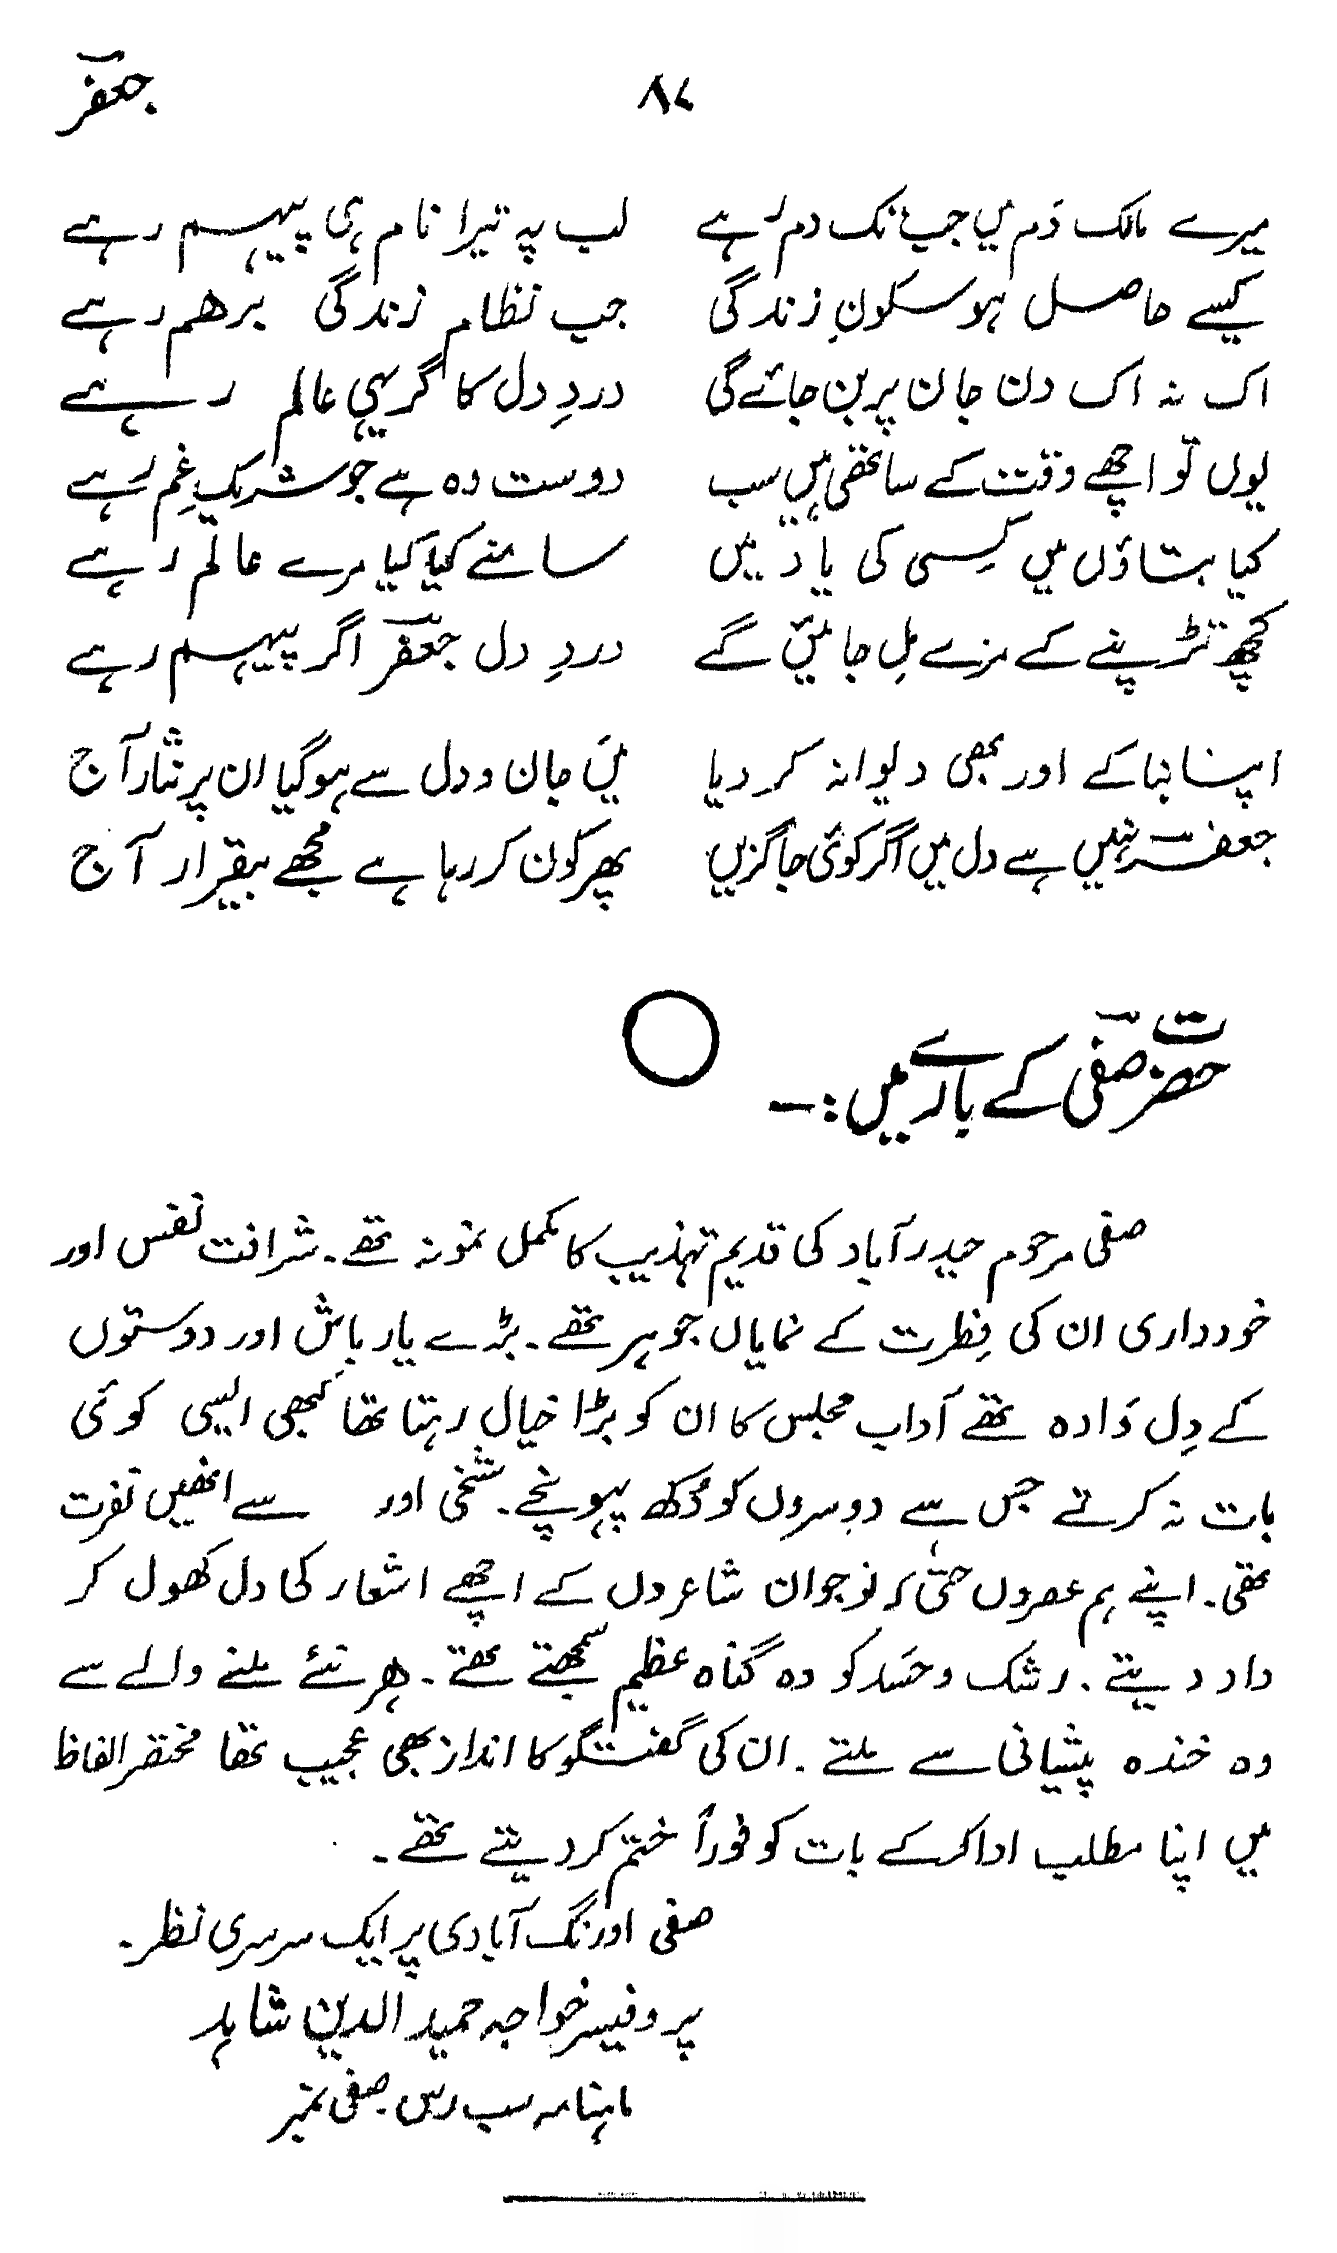 جعفرؔ
۸۷
میرے مالک دَم میں جب تک دم رہے لب پہ تیرا نام ہی پیہم رہے
کیسے حاصل ہو سکونِ زندگی جب نظامِ زندگی برھم رہے
اک نہ اک دن جان پر بن جائے گی دردِ دل کا گر یہی عالم رہے
یوں تو اچھے وقت کے ساتھی ہیں سب دوست وہ ہے جو شریکِ غم رہے
کیا بتاؤں میں کسِی کی یاد میں سامنے کیا کیا مرے عالم رہے
کچھ تڑپنے کے مزے مِل جائیں گے دردِ دل جعفرؔ اگر پیہم رہے
اپنا بنا کے اور بھی دیوانہ کر دیا میں جان و دل سے ہو گیا ان پر نثار آج
جعفرؔ نہیں ہے دل میں اگر کوئی جاگزیں پھر کون کر رہا ہے مجھے بیقرار آج
حضرت صفیؔ کے بارے میں :۔
صفی مرحوم حیدرآباد کی قدیم تہذیب کا مکمل نمونہ تھے۔ شرافت نفس اور
خودداری ان کی فِطرت کے نمایاں جوہر تھے۔ بڑے یار باش اور دوستوں
کے دِل دَادہ تھے آداب مجلس کا ان کو بڑا خیال رہتا تھا کبھی ایسی کوئی
بات نہ کرتے جس سے دوسروں کو دُکھ پہونچے۔ شیخی اور سے انھیں نفرت
تھی۔ اپنے ہم عصروں حتیٰ کہ نوجوان شاعروں کے اچھے اشعار کی دل کھول کر
داد دیتے۔ رشک و حسَد کو وہ گناہ عظیم سمجھتے تھے۔ ھر نئے ملنے والے سے
وہ خندہ پیشانی سے ملتے۔ ان کی گفتگو کا انداز بھی عجیب تھا مختصر الفاظ
میں اپنا مطلب ادا کر کے بات کو فوراً ختم کر دیتے تھے۔
صفی اورنگ آبادی پر ایک سرسری نظر۔
پروفیسر خواجہ حمید الدین شاہد
ماہنامہ سب رس۔ صفی نمبر